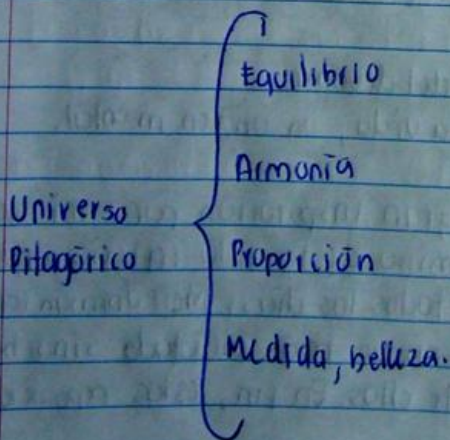 Universo
Pitagórico
Equilibrio
Armonía
Proporción
Medida, belleza.